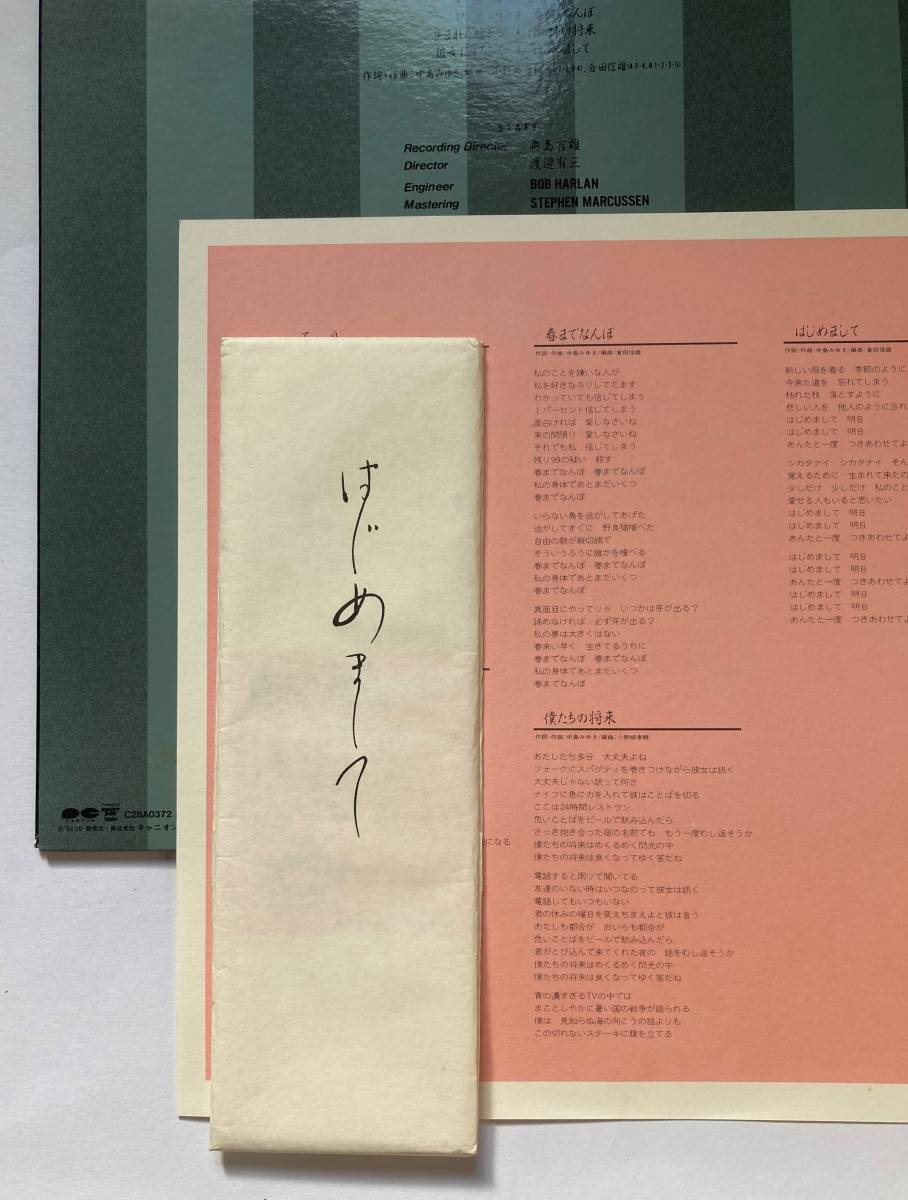 春までなんぼ
の将来
はじめまして
作詞・作曲:中島みゆき
倉田信雄(A・3・4、B・1・2・3・5)
STAFF
Recording Director
Director 渡辺有三
Engineer BOB HARLAN
Mastering STEPHEN MARCUSSEN
はじめまして
C28A0372
春までなんぼ
作詞・作曲:中島みゆき/編曲:倉田信雄
私のことを嫌いな人が
私を好きなふりしてだます
わかっていても信じてしまう
1パーセント信じてしまう
面白ければ 愛しなさいね
束の間限り 愛しなさいね
それでも私 信じてしまう
残り99の疑い 殺す
春までなんぼ 春までなんぼ
私の身体であとまだいくつ
春までなんぼ
いらない鳥を逃がしてあげた
逃がしてすぐに 野良猫喰べた
自由の歌が親切顔で
そういうふうに誰かを喰べる
春までなんぼ 春までなんぼ
私の身体であとまだいくつ
春までなんぼ
真面目にやってりゃ いつかは芽が出る?
諦めなければ 必ず芽が出る?
私の夢は大きくはない
春来い早く 生きてるうちに
春までなんぼ 春までなんぼ
私の身体であとまだいくつ
春までなんぼ
僕たちの将来
作詞・作曲:中島みゆき/編曲:小野崎孝輔
あたしたち多分 大丈夫よね
フォークにスパゲティを巻きつけながら彼女は訊く
大丈夫じゃない訳って何さ
ナイフに急に力を入れて彼はことばを切る
ここは24時間レストラン
危いことばをビールで飲み込んだら
さっき抱き合った宿の名前でも もう一度むし返そうか
僕たちの将来はめくるめく閃光の中
僕たちの将来は良くなってゆく筈だね
電話すると周りで聞いてる
友達のいない時はいつなのって彼女は訊く
電話してもいつもいない
君の休みの曜日を変えちまえよと彼は言う
あたしも都合が おいらも都合が
危いことばをビールで飲み込んだら
君がとび込んで来てくれた夜の 話をむし返そうか
僕たちの将来はめくるめく閃光の中
僕たちの将来は良くなってゆく筈だね
青の濃すぎるTVの中では
まことしやかに暑い国の戦争が語られる
僕は 見知らぬ海の向こうの話よりも
この切れないステーキに腹を立てる
はじめまして
作詞・作曲:中島みゆき/編曲:倉田信雄
新しい服を着る 季節のように
今来た道を 忘れてしまう
枯れた枝 落とすように
悲しい人を 他人のように忘れ
はじめまして 明日
はじめまして 明日
あんたと一度 つきあわせてよ
シカタナイ シカタナイ そん
覚えるために 生まれて来たの
少しだけ 少しだけ 私のこと
愛せる人もいると思いたい
はじめまして 明日
はじめまして 明日
あんたと一度 つきあわせてよ
はじめまして 明日
はじめまして 明日
あんたと一度 つきあわせてよ
はじめまして 明日
はじめまして 明日
あんたと一度 つきあわせてよ
になる